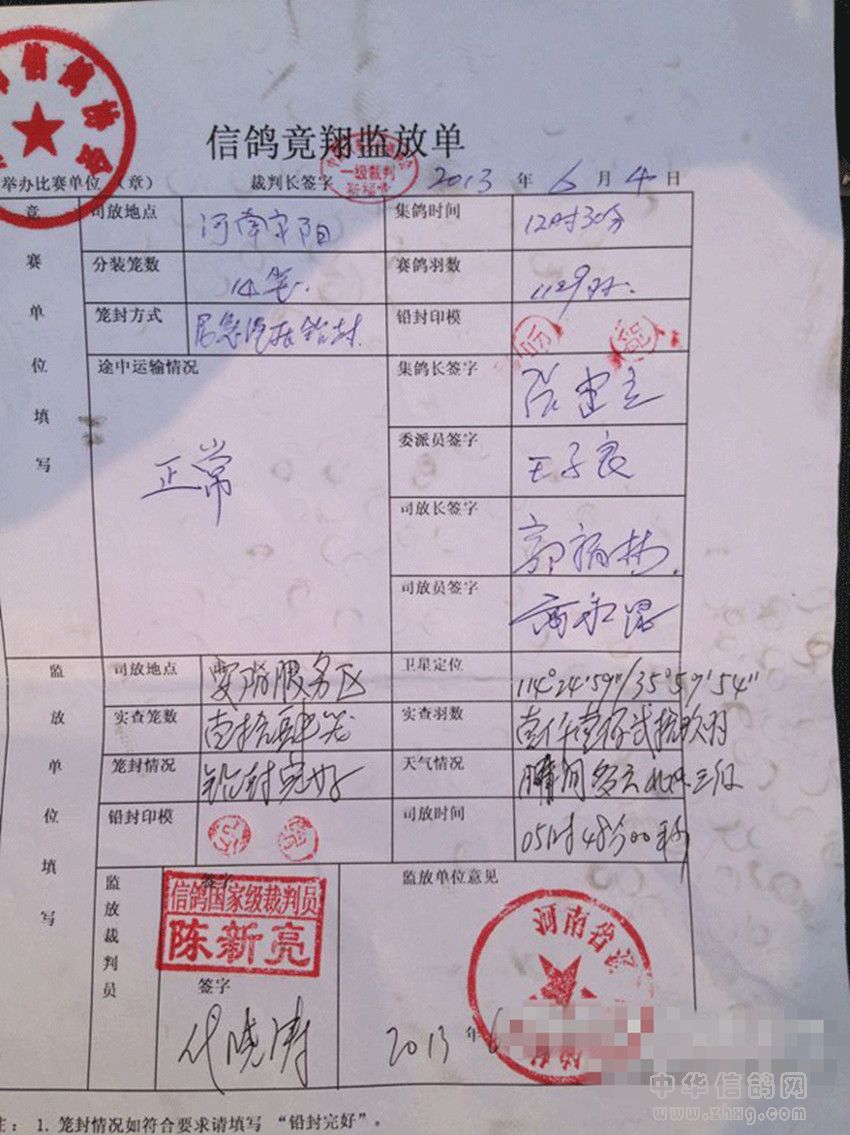 信鸽竞翔监放单
举办比赛单位（章） 裁判长签字 一级裁判 2013 年 6 月 4 日
竞赛单位填写
司放地点 河南安阳 集鸽时间 12时30分
分装笼数 14笼. 赛鸽羽数 1129羽.
笼封方式 铅封 铅封印模
途中运输情况 正常 集鸽长签字 张建立
委派员签字 王子良
司放长签字 郭福林
司放员签字
监放单位填写
司放地点 安阳服务区 卫星定位 114°24'59"/35°59'54"
实查笼数 壹拾肆笼 实查羽数 壹仟壹佰贰拾玖羽
笼封情况 铅封完好 天气情况 晴间多云北风三级
铅封印模 司放时间 05时48分00秒
监放裁判员 签字 监放单位意见
信鸽国家级裁判员
陈新亮
河南省
签字
代晓涛 2013 年 6
中华信鸽网
www.zhxg.com
注：1. 笼封情况如符合要求请填写 “铅封完好”。